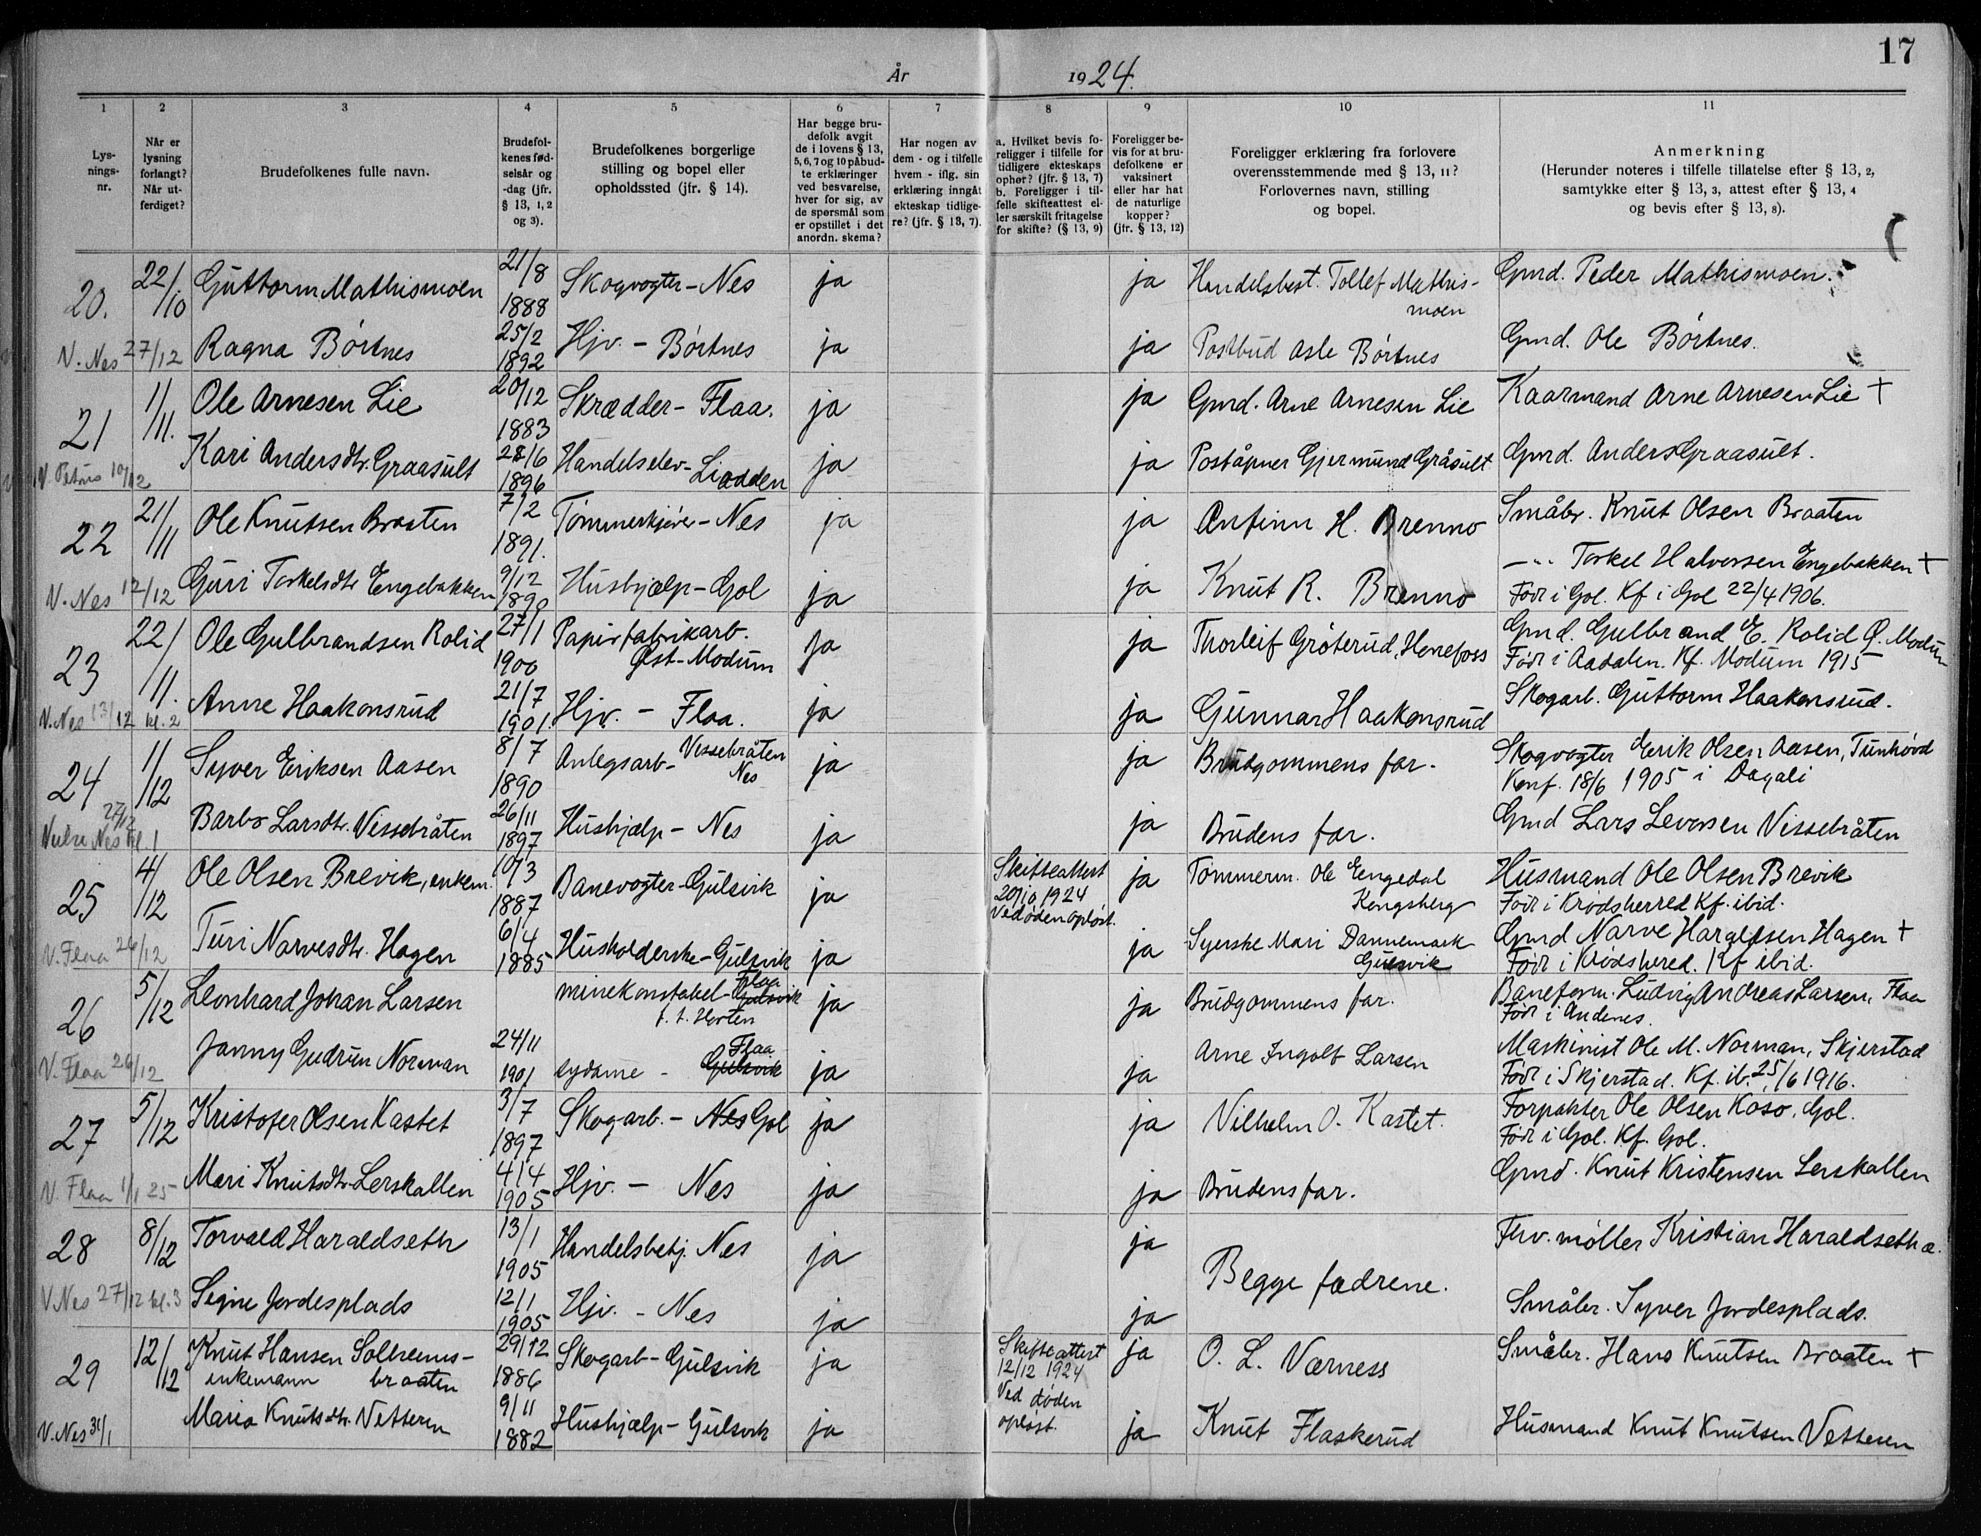 17
År 1924.
1 2 3 4 5 6 7 8 9 10 11
Lys-
nings-
nr.
Når er
lysning
forlangt?
Når ut-
ferdiget?
Brudefolkenes fulle navn.
Brudefol-
kenes fød-
selsår og
-dag (jfr.
§ 13, 1, 2
og 3).
Brudefolkenes borgerlige
stilling og bopel eller
opholdssted (jfr. § 14).
Har begge bru-
defolk avgit
de i lovens § 13,
5, 6, 7 og 10 påbud-
te erklæringer
ved besvarelse,
hver for sig, av
de spørsmål som
er opstillet i det
anordn. skema?
Har nogen av
dem - og i tilfelle
hvem - iflg. sin
erklæring inngåt
ekteskap tidlige-
re? (jfr. § 13, 7).
a. Hvilket bevis fo-
religger i tilfelle for
tidligere ekteskaps
ophør? (jfr. § 13, 7)
b. Foreligger i til-
felle skifteattest el-
ler særskilt fritagelse
for skifte? (§ 13, 9)
Foreligger be-
vis for at bru-
defolkene er
vaksinert
eller har hat
de naturlige
kopper?
(jfr. § 13, 12)
Foreligger erklæring fra forlovere
overensstemmende med § 13, 11?
Forlovernes navn, stilling
og bopel.
Anmerkning
(Herunder noteres i tilfelle tillatelse efter § 13, 2,
samtykke efter § 13, 3, attest efter § 13, 4
og bevis efter § 13, 8).
20. 22/10 Guttorm Mathismoen 21/8 1888 Skogvogter - Nes ja ja Handelsbest. Tollef Mathis-
moen Gmd. Peder Mathismoen.
V. Nes 27/12 Ragna Börtnes 25/2 1892 Hjv. - Börtnes ja ja Postbud Asle Börtnes Gmd. Ole Börtnes.
21 1/11. Ole Arnesen Lie 20/12 1883 Skrædder - Flaa. ja ja Gmd. Arne Arnesen Lie Kaarmand Arne Arnesen Lie +
10/12 Kari Andersdtr. Graasult 28/6 1896 Handelselev - Liodden ja ja Poståpner Gjermund Gråsult Gmd. Anders Graasult.
22 21/11 Ole Knutsen Braaten 7/2 1891. Tømmerkjører - Nes ja ja Anfinn H. Brenno Småbr. Knut Olsen Braaten
V. Nes 12/12 Guri Torkelsdtr Engebakken 9/12 1890 Hushjælp - Gol ja ja Knut R. Brenno —"— Torkel Halvorsen Engebakken +
Född i Gol. Kf i Gol 22/4 1906.
23 22/11. Ole Gulbrandsen Rolid 27/1 1900 Papirfabrikarb.
Øst-Modum ja ja Thorleif Gröterud, Hønefoss Gmd. Gulbrand E. Rolid Ø. Modum
Född i Aadalen. Kf. Modum 1915
V. Nes 13/12 kl. 2 Anne Haakonsrud 21/7 1901. Hjv. - Flaa. ja ja Gunnar Haakonsrud Skogarb. Guttorm Haakonsrud.
24 1/12 Syver Eriksen Aasen 8/7 1890 Anlegsarb - Vissebråten
Nes ja ja Brudgommens far. Skogvogter Erik Olsen Aasen, Tunhövd
Konf. 18/6 1905 i Dagali
27/12
Nes kl. 1 Barbo Larsdtr. Vissebråten 26/11 1897 Hushjælp - Nes ja ja Brudens far. Gmd Lars Levorsen Vissebråten
25 4/12 Ole Olsen Brevik, enkem. 10/3 1887 Banevogter - Gulsvik ja Skifteattest
20/10 1924
Ved døden opløst. ja Tømmerm. Ole Engedal
Kongsberg Husmand Ole Olsen Brevik
Född i Krödsherred Kf. ibid.
V. Flaa 26/12 Turi Narvesdtr. Hagen 6/4 1885 Husholderske - Gulsvik ja ja Syerske Mari Dannemark
Gulsvik Gmd Narve Hagen +
Född i Krödsherred. Kf ibid.
26 5/12 Leonhard Johan Larsen Minekonstabel - Flaa
Gulsvik
f. t. Horten ja ja Brudgommens far. Baneform. Ludvig Andreas Larsen, Flaa
Född i Andenes.
V. Flaa 26/12 Janny Gudrun Norman 24/11 1901 sydame - Flaa
Gulsvik ja ja Arne Ingolf Larsen Maskinist Ole M. Norman, Skjerstad
Född i Skjerstad. Kf. ib. 25/6 1916.
27 5/12 Kristofer Olsen Kastet 3/7 1897 Skogarb. - Nes Gol ja ja Vilhelm O. Kastet. Forpakter Ole Olsen Koso, Gol.
Född i Gol. Kf. Gol.
V. Flaa 1/1 25 Mari Knutsdtr. Lerskallen 4/4 1905 Hjv. - Nes ja ja Brudens far. Gmd. Knut Kristensen Lerskallen
28 8/12 Torvald Haraldseth 13/1 1905 Handelsbetj. Nes ja ja Begge fædrene. Fhv. møller Kristian Haraldseth
V. Nes 27/12 kl. 3 Signe Jordesplads 12/1 1905 Hjv. - Nes ja ja Småbr. Syver Jordesplads.
29 12/12 Knut Hansen Solheims-
enkemann braaten 29/12 1886 Skogarb - Gulsvik ja Skifteattest
12/12 1924
Ved døden
opløst. ja O. L. Værness Småbr. Hans Knutsen Braaten +
V. Nes 31/1 Maria Knutsdtr. Vetteren 9/11 1882 Hushjælp - Gulsvik ja ja Knut Flaskerud Husmand Knut Knutsen Vetteren